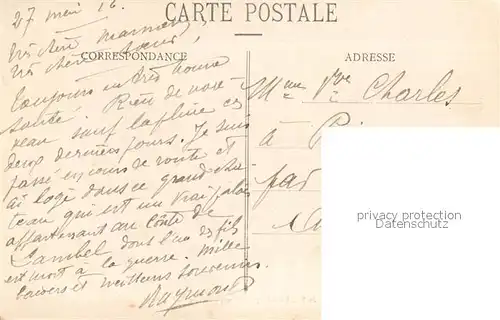 27 mai 16.
CARTE POSTALE
Très chère maman,
Très chère sœur,
CORRESPONDANCE
ADRESSE
Toujours en très bonne
santé. Rien de nou-
veau sauf la pluie ces
deux derniers jours. Je suis
passé en cours de route et
ai logé dans ce grand châ-
teau qui est un vrai palais
appartenant au Comte de
Lambel dont l'un des fils
est mort à la guerre. Mille
baisers et meilleurs souvenirs.
Raymond
Mme Vve Charles
à
par
privacy protection
watermark